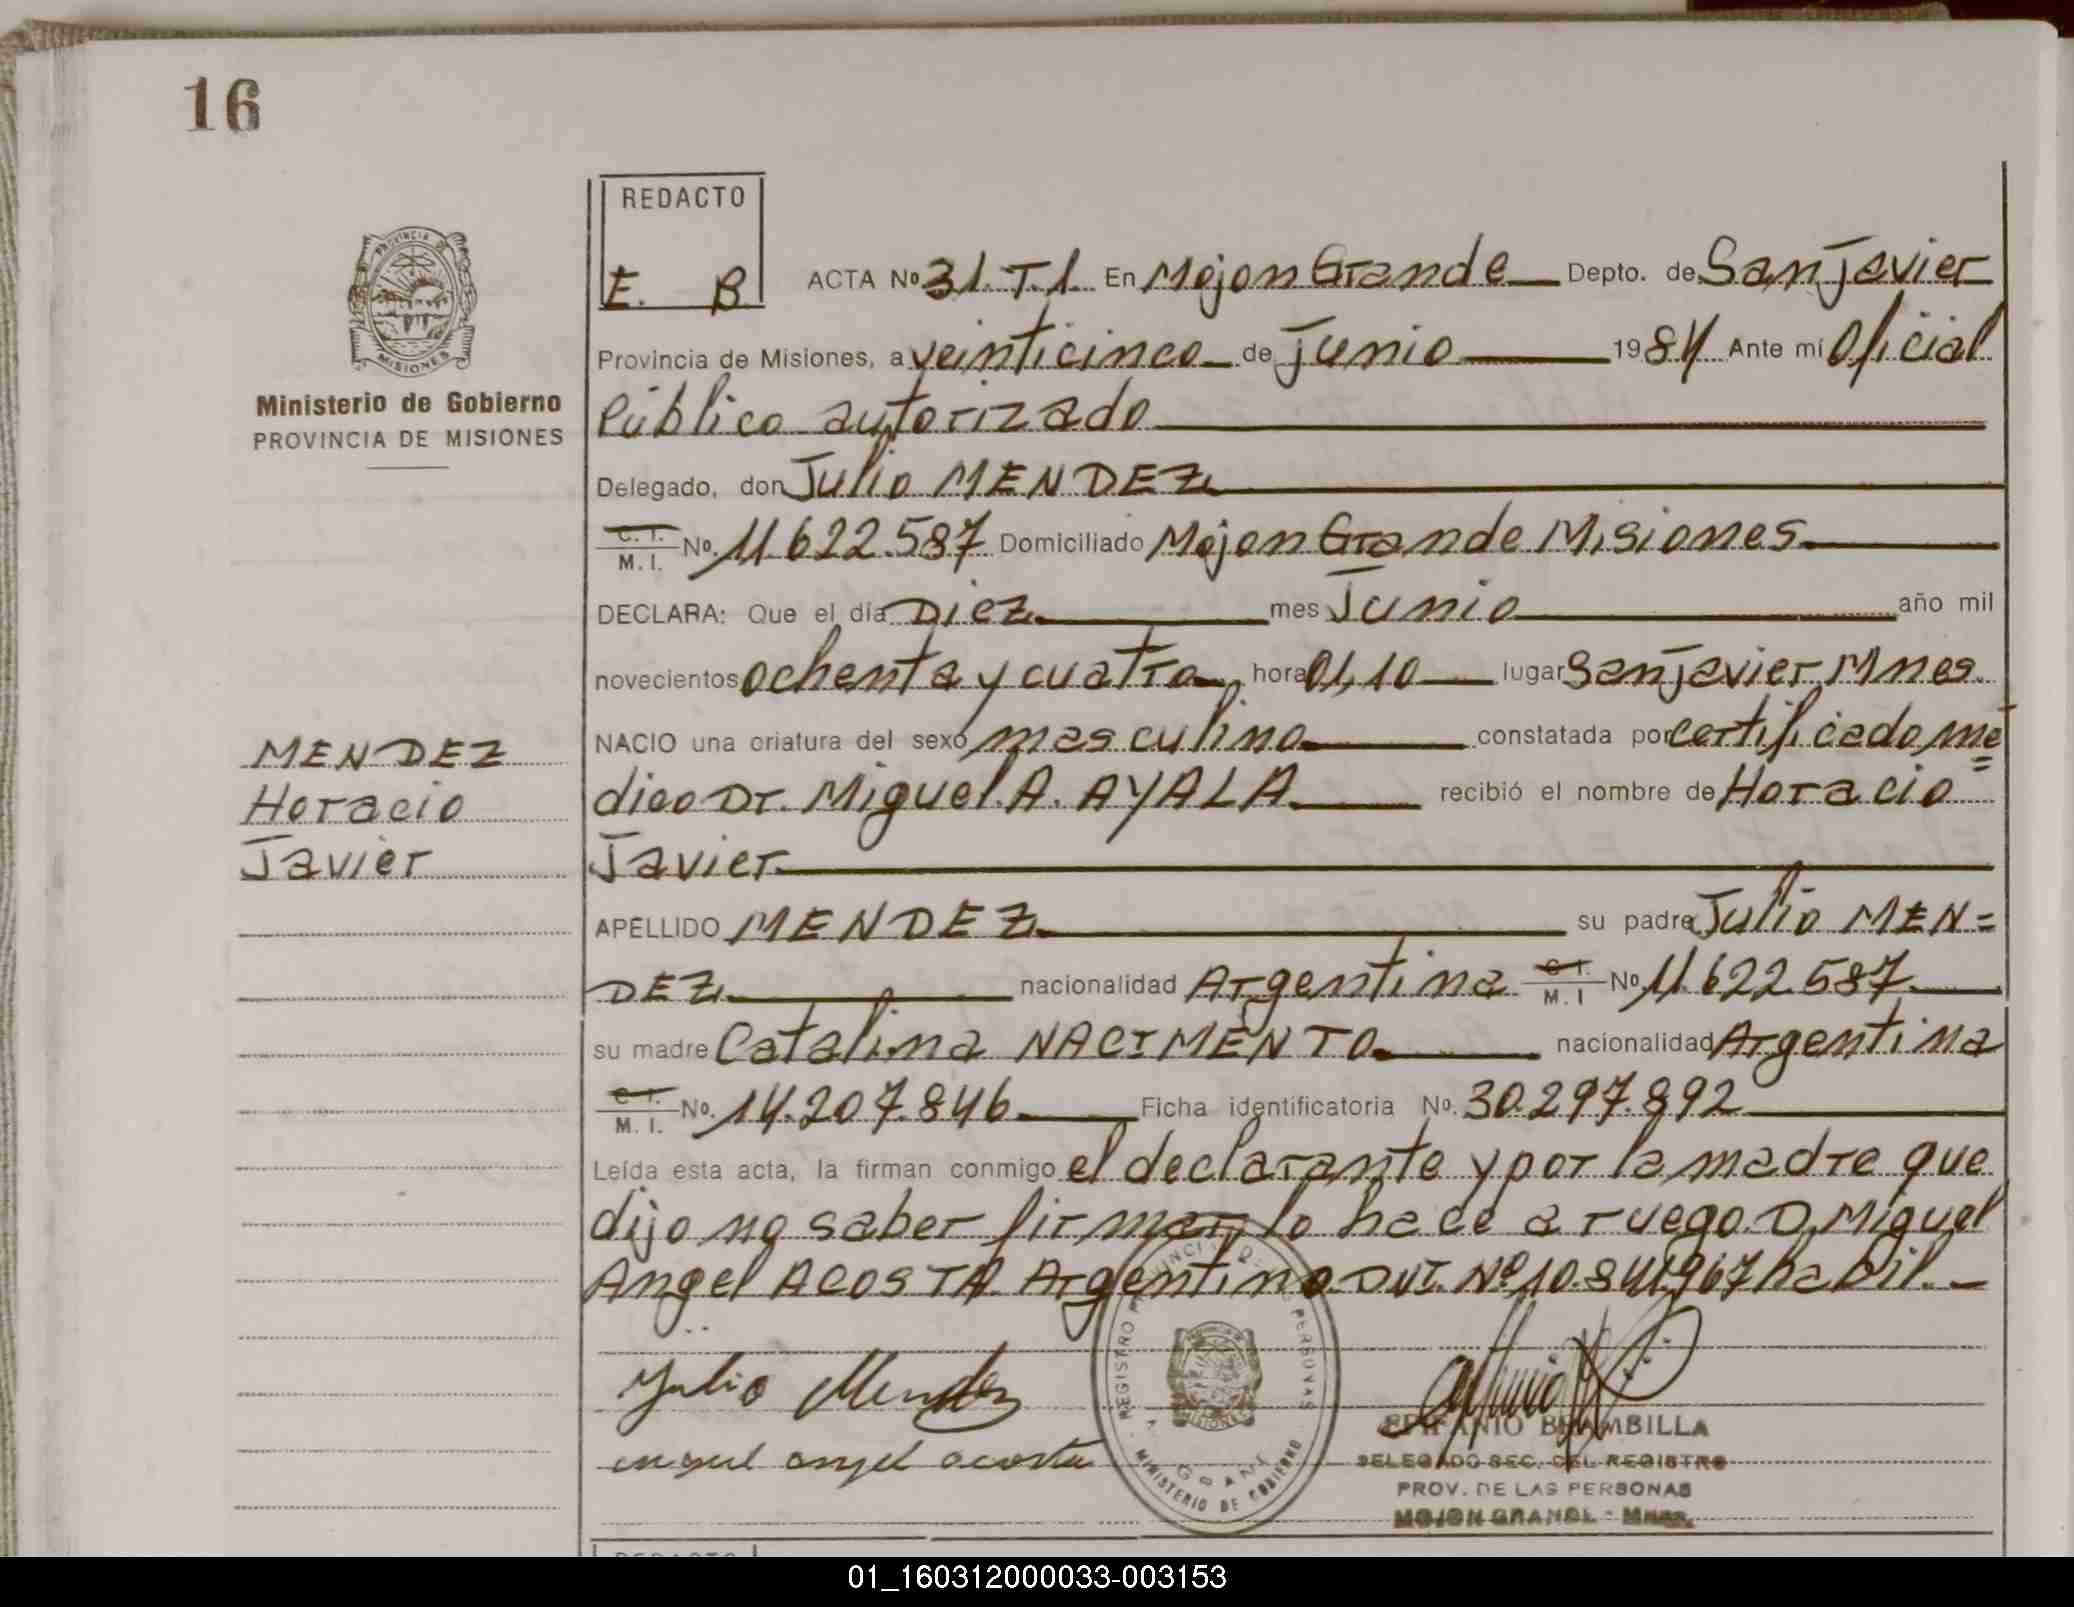 16
REDACTO
E. B
PROVINCIA DE
MISIONES
Ministerio de Gobierno
PROVINCIA DE MISIONES
MENDEZ
Horacio
Javier
ACTA Nº 31.T.1. En Mojon Grande Depto. de San Javier
Provincia de Misiones, a veinticinco de Junio 1984 Ante mí Oficial
Público autorizado
Delegado, don Julio MENDEZ
C. I. M. I. Nº. 11.622.587 Domiciliado Mojon Grande Misiones
DECLARA: Que el día Diez mes Junio año mil
novecientos ochenta y cuatro hora 01,10 lugar San Javier Mnes.
NACIO una criatura del sexo masculino constatada por certificado mé=
dico Dr. Miguel A. AYALA recibió el nombre de Horacio
Javier
APELLIDO MENDEZ su padre Julio MEN=
DEZ nacionalidad Argentina C. I. M. I Nº. 11.622.587
su madre Catalina NACIMENTO nacionalidad Argentina
C. I. M. I. Nº. 14.207.846 Ficha identificatoria Nº. 30.297.892
Leída esta acta, la firman conmigo el declarante y por la madre que
dijo no saber firmar lo hace a ruego D. Miguel
Angel ACOSTA Argentino D.N.I. Nº 10.841.967 habil.
Julio Mendez
angel acosta
REGISTRO PERSONAS
MINISTERIO DE GOBIERNO
MISIONES
EPIFANIO BRAMBILLA
DELEGADO SEC. DEL REGISTRO
PROV. DE LAS PERSONAS
MOJON GRANDE - Mnes.
REDACTO
01_160312000033-003153